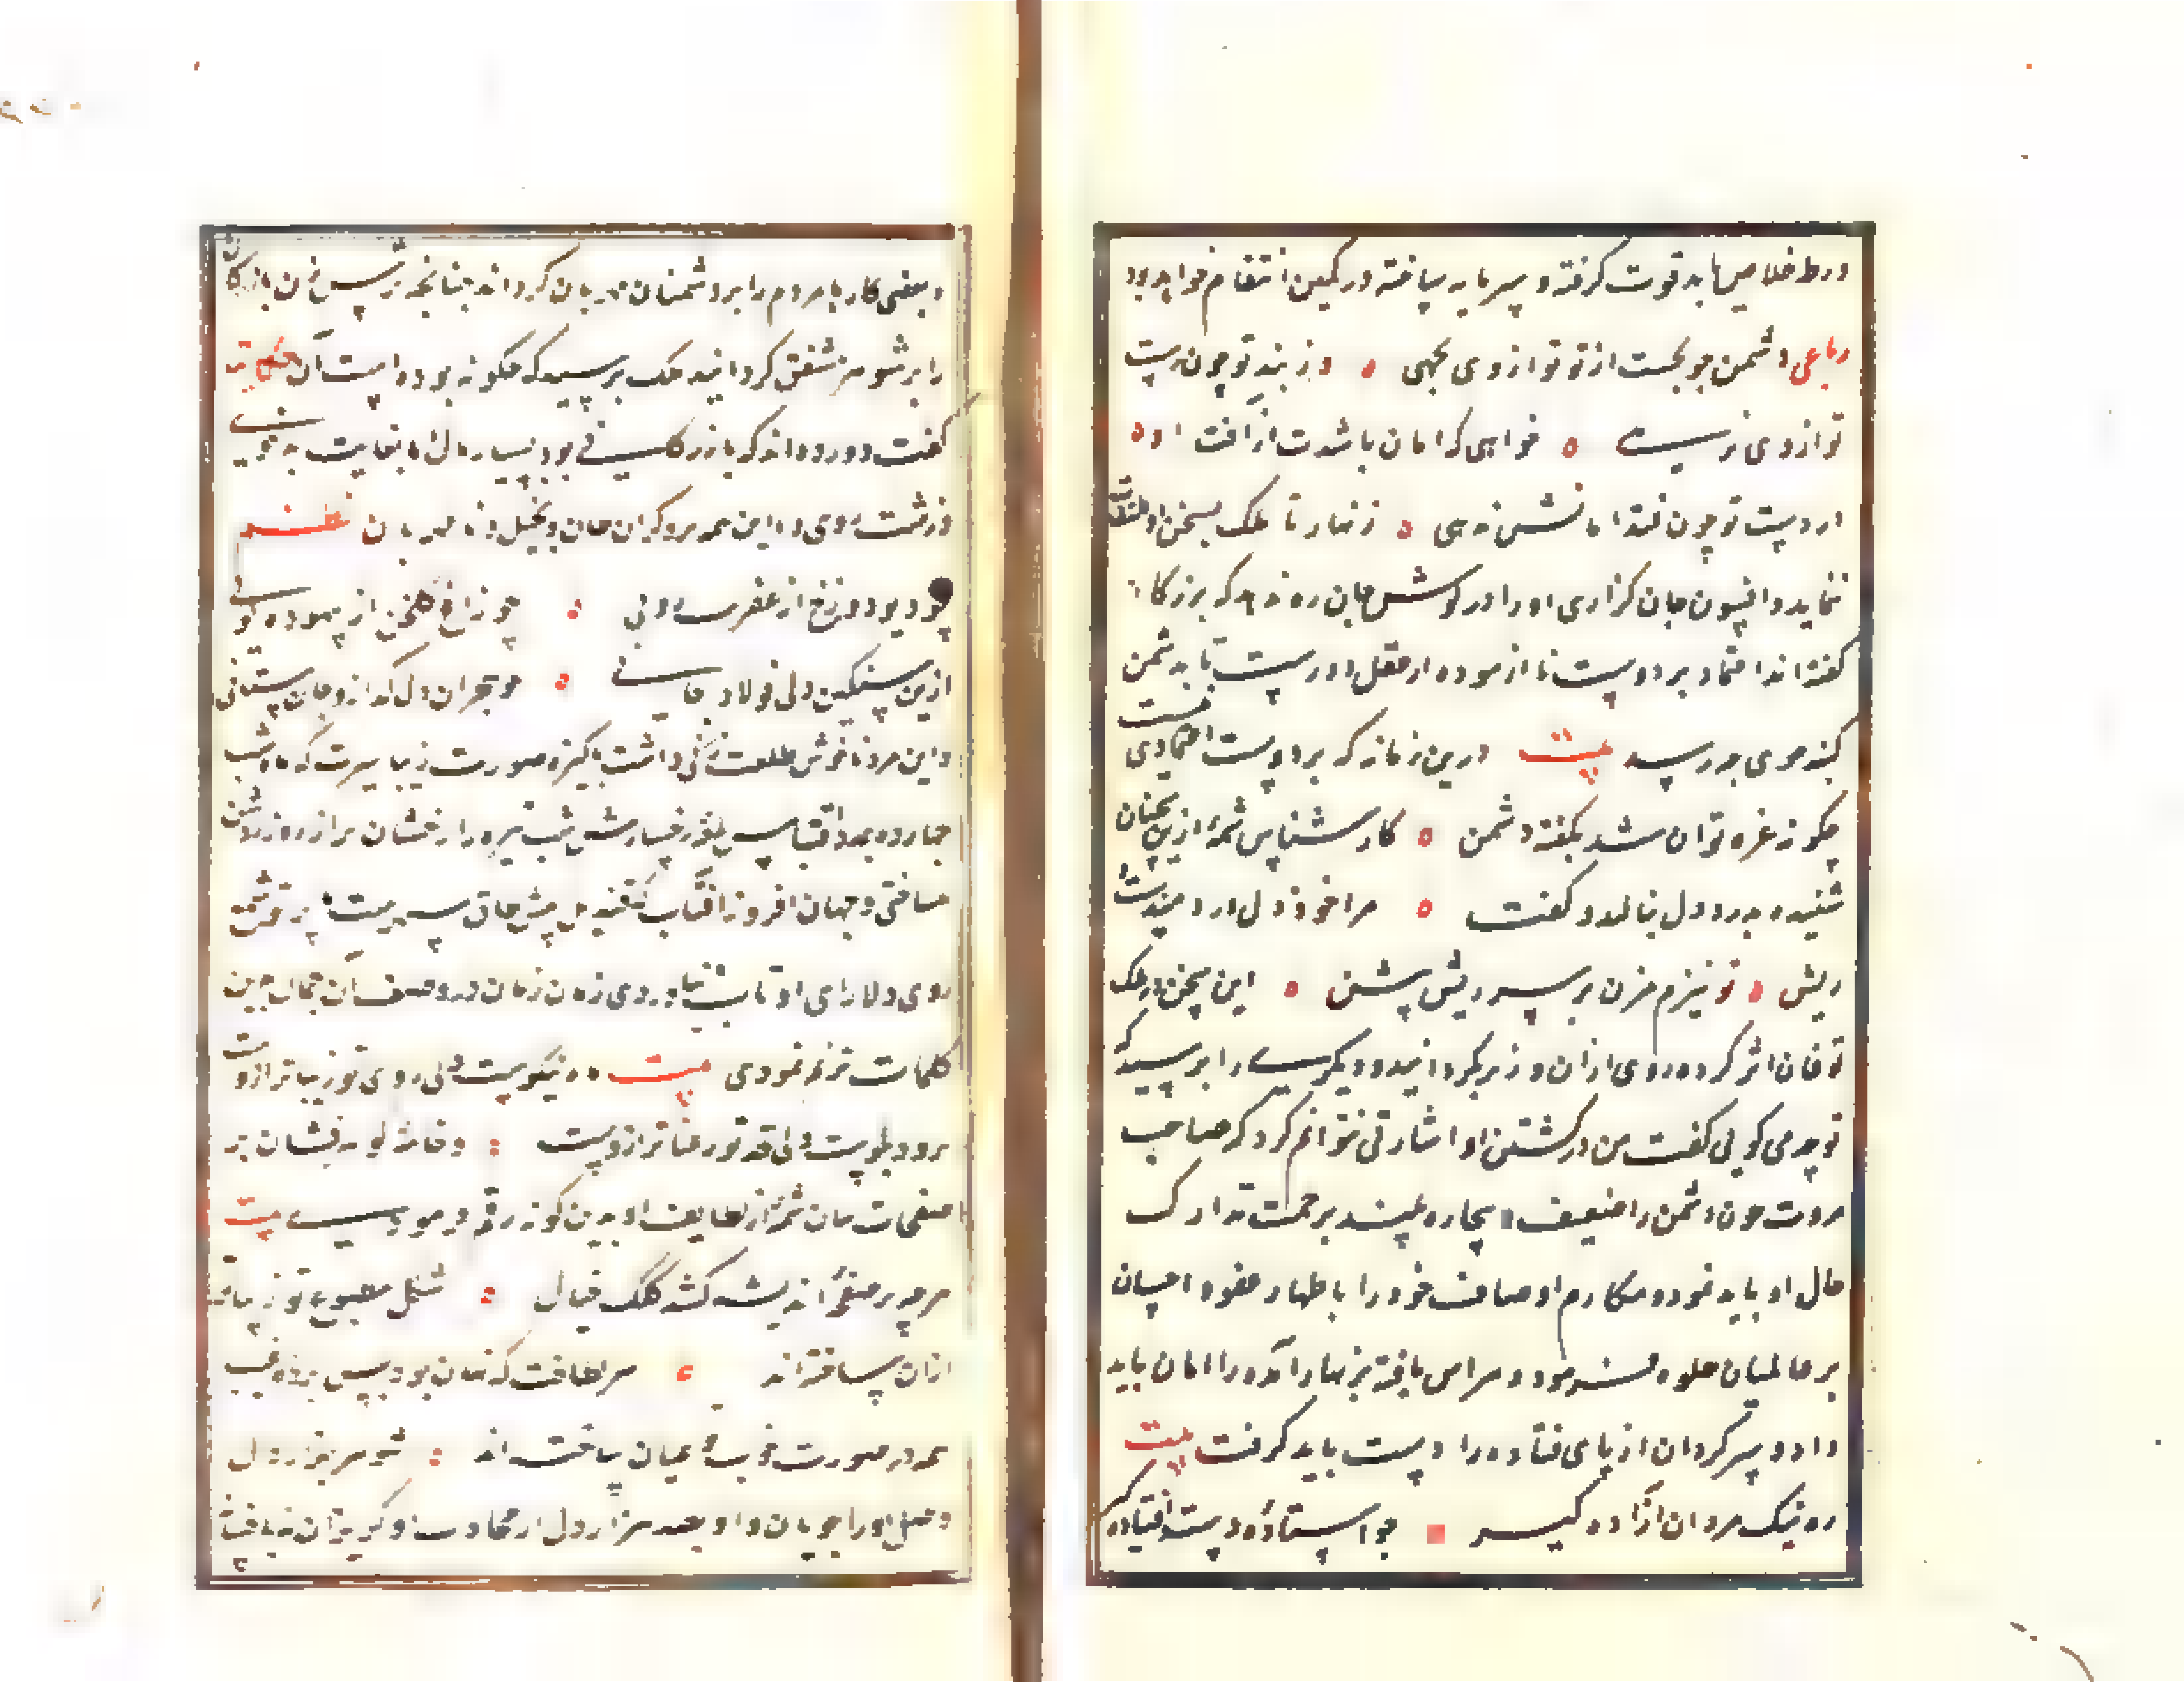 ورط خلاصی یابد قوت گرفته و سرمایه ساخته در کمین انتقام خواهد بود
رباعی دشمن چو بجست از تو تو از وی بجهی وز بند تو چون برست
تو از وی نرسی خواهی که امان باشدت از آفت او
در دست تو چون فتد امانش ندهی زنهار تا ملک بسخن او التفات
ننماید و افسون جان گزاری او را در گوش جان ره ندهد که بزرکان
گفته‌اند اعتماد بر دوست نا آزموده از عقل دور است تا به دشمن
کینه جوی چه رسد بیت درین زمانه که بر دوست اعتمادی نیست
چگونه غره توان شد بگفته دشمن کارشناس شمهٔ ازین سخنان
شنیده بدرد دل بنالید و گفت مرا خود دل دردمندست
ریش تو نیزم مزن بر سر ریش نیش این سخن در ملک
توفان اثر کرده روی از آن وزیر بگردانید و دیگری را پرسید که
تو چه می گویی گفت من در کشتن او اشارتی نتوانم کرد که صاحب
مروت چون دشمن را ضعیف و بیچاره بیند برحمت تدارک
حال او باید نمود و مکارم اوصاف خود را باظهار عفو و احسان
بر عالمیان جلوه باید نمود و هراس یافته بزنهار آمده را امان باید
داد و سرگردان از پای فتاده را دست باید گرفت بیت
ره نیک مردان آزاده گیر چو استاده‌ای دست افتاده گیر
و بعضی کارها مردم را بر دشمنان مهربان گرداند چنانچه ترس زن بازرگان
را بر شوهر مشفق گردانید ملک پرسید که چگونه بوده است آن حکایت
گفت آورده‌اند که بازرگانی بود بسیار مال اما بغایت بدخوی
و زشت روی و با این همه گران جان و بخیل و نامهربان نظم
چو دیو دوزخ از عفریت رویی چو زاغ گلخن از بیهوده گویی
ازین سنگین دلی فولاد جانی چو هجران دل گداز و جان ستانی
و این مرد ناخوش طلعت زنی داشت پاکیزه صورت زیبا سیرت که ماه شب
چهارده بمدد اقتباس نور رخسارش شب تیره را رخشان تر از روز روشن
ساختی و جهان افروز آفتاب
روی دلارای او تاب نیاوردی زبان زمان در وصف آن جمال بدین
کلمات ترنم نمودی بیت مه نیکوست ولی روی تو زیباتر ازوست
سرو دلجوست ولی قد تو رعناتر ازوست و خامهٔ
صفحات بیان شمهٔ از لطایف او بدین گونه رقم زد بیت
هر چه بر صفحهٔ اندیشه کشد کلک خیال شکل مطبوع تو زیباتر
از آن ساخته‌اند هر لطافت که نهان بود پس پردهٔ غیب
همه در صورت خوب تو عیان ساخته‌اند شوهر بهزار دل
وصل او را جویان و او بصد هزار دل از مخالطت او گریزان نه یافسانه